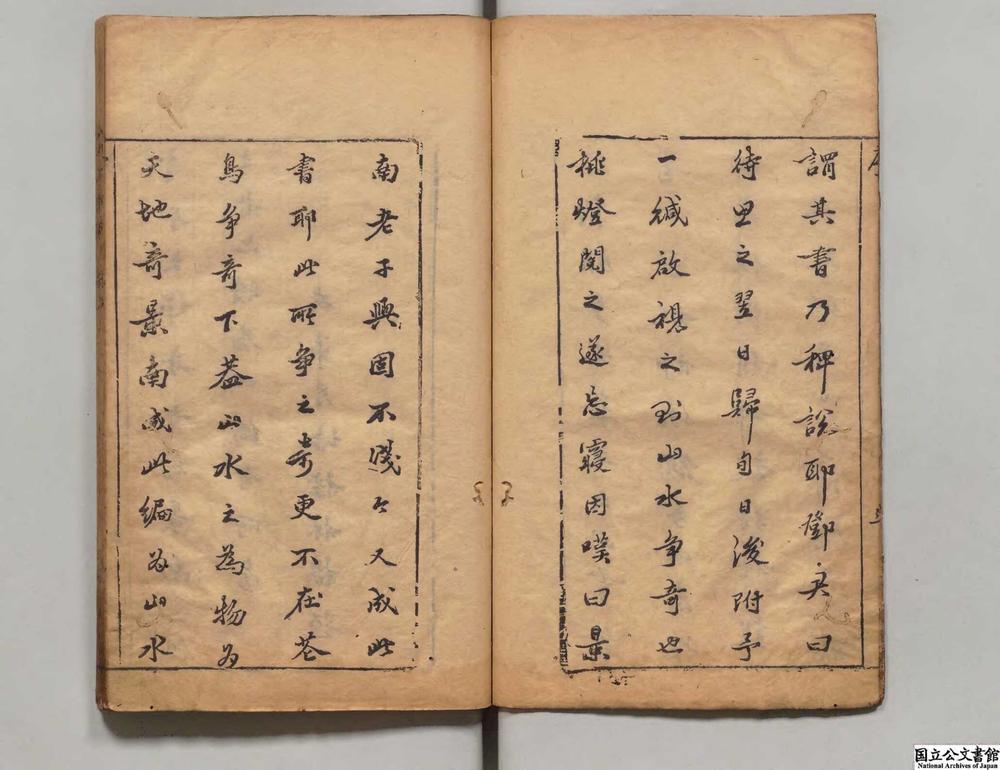 謂其書乃稗說耶鄧君曰
待思之翌日歸旬日後附予
一緘啟視之則山水爭奇也
挑燈閱之遂忘寢因嘆曰景
南老子興固不淺今又成此
書耶此所爭之奇更不在花
鳥爭奇下蓋山水之為物為
天地奇景南成此編為山水
序
国立公文書館
National Archives of Japan